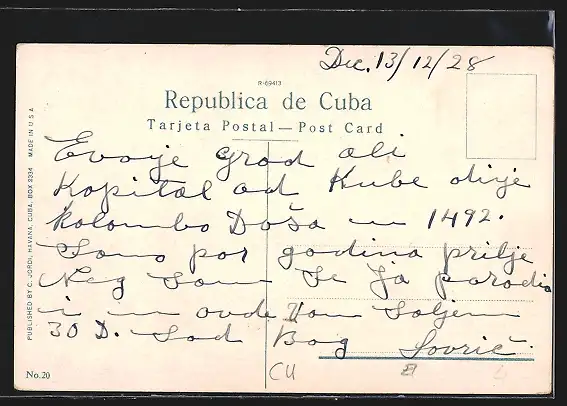 Dec. 13/12/28
R-69413
Republica de Cuba
Tarjeta Postal — Post Card
Evo je grad ali
Kapital od Kube dije
Kolombo Doša in 1492.
Samo par godina prilje
Neg sam se ja parodia
i in ovde Vam saljem
30 D. Sad Bog Lovrić
CU
PUBLISHED BY C. JORDI, HAVANA, CUBA, BOX 2334 MADE IN U S A
No. 20